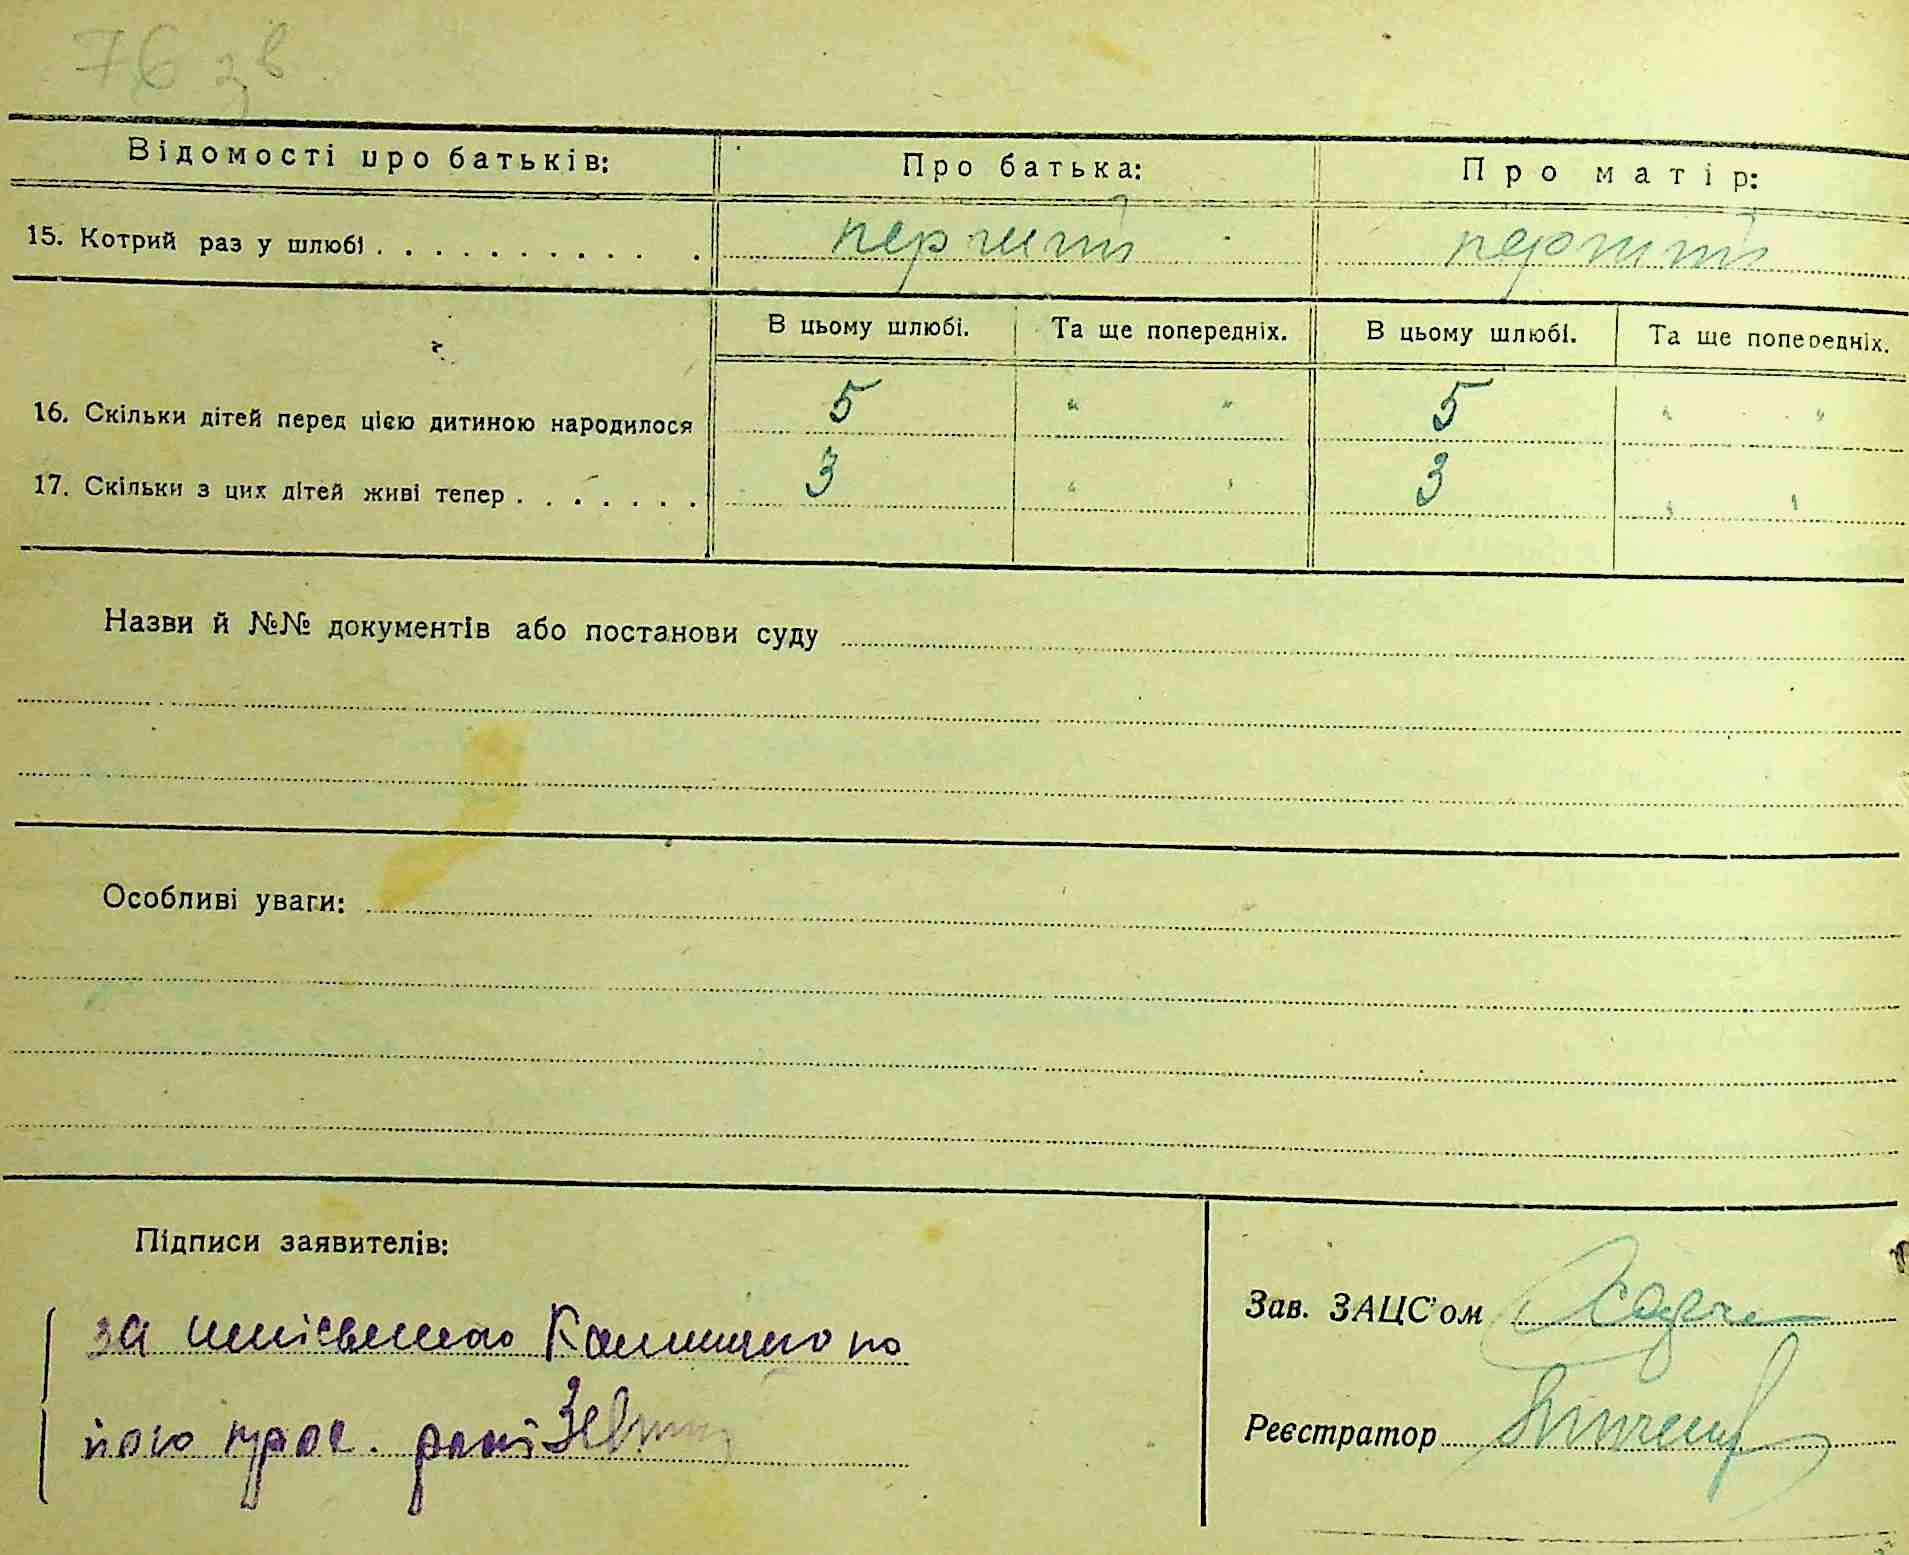 76 зв
Відомості про батьків: Про батька: Про матір:
15. Котрий раз у шлюбі . . . . . . . . . . . . перший перший
В цьому шлюбі. Та ще попередніх. В цьому шлюбі. Та ще попередніх.
16. Скільки дітей перед цією дитиною народилося 5 " " 5 " "
17. Скільки з цих дітей живі тепер . . . . . . . 3 " " 3 " "
Назви й №№ документів або постанови суду
Особливі уваги:
Підписи заявителів:
за
його прос.
Зав. ЗАЦС'ом
Реєстратор